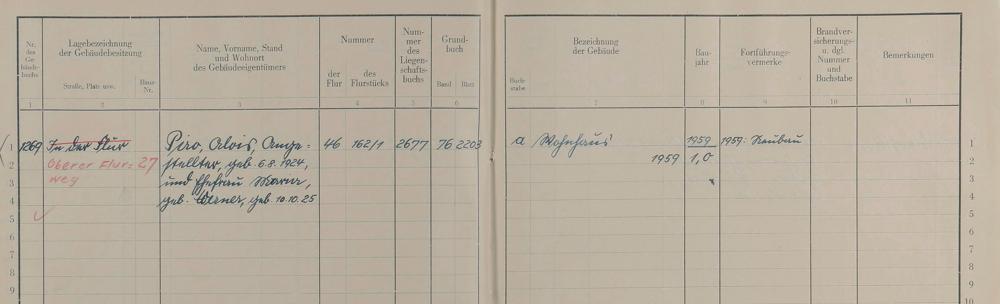 Nr. des Ge- bäude- buchs
Lagebezeichnung
der Gebäudebesitzung
Straße, Platz usw.
Haus- Nr.
Name, Vorname, Stand
und Wohnort
des Gebäudeeigentümers
Nummer
der Flur
des Flurstücks
Num- mer des Liegen- schafts- buchs
Grund- buch
Band
Blatt
Buch- stabe
Bezeichnung
der Gebäude
Bau- jahr
Fortführungs-
vermerke
Brandver-
sicherungs-
u. dgl.
Nummer
und
Buchstabe
Bemerkungen
1 2 3 4 5 6 7 8 9 10 11
1 1269 In der Flur Piro, Alois, Ange- 46 162/1 2677 76 2203 a Wohnhaus 1959 1959: Neubau 1
2 Oberer Flur- 27 stellter, geb. 6.8.1924, 1959 1,0 2
3 weg und Ehefrau Maria, 3
4 geb. geb. 10.10.25 4
5 5
6 6
7 7
8 8
9 9
10